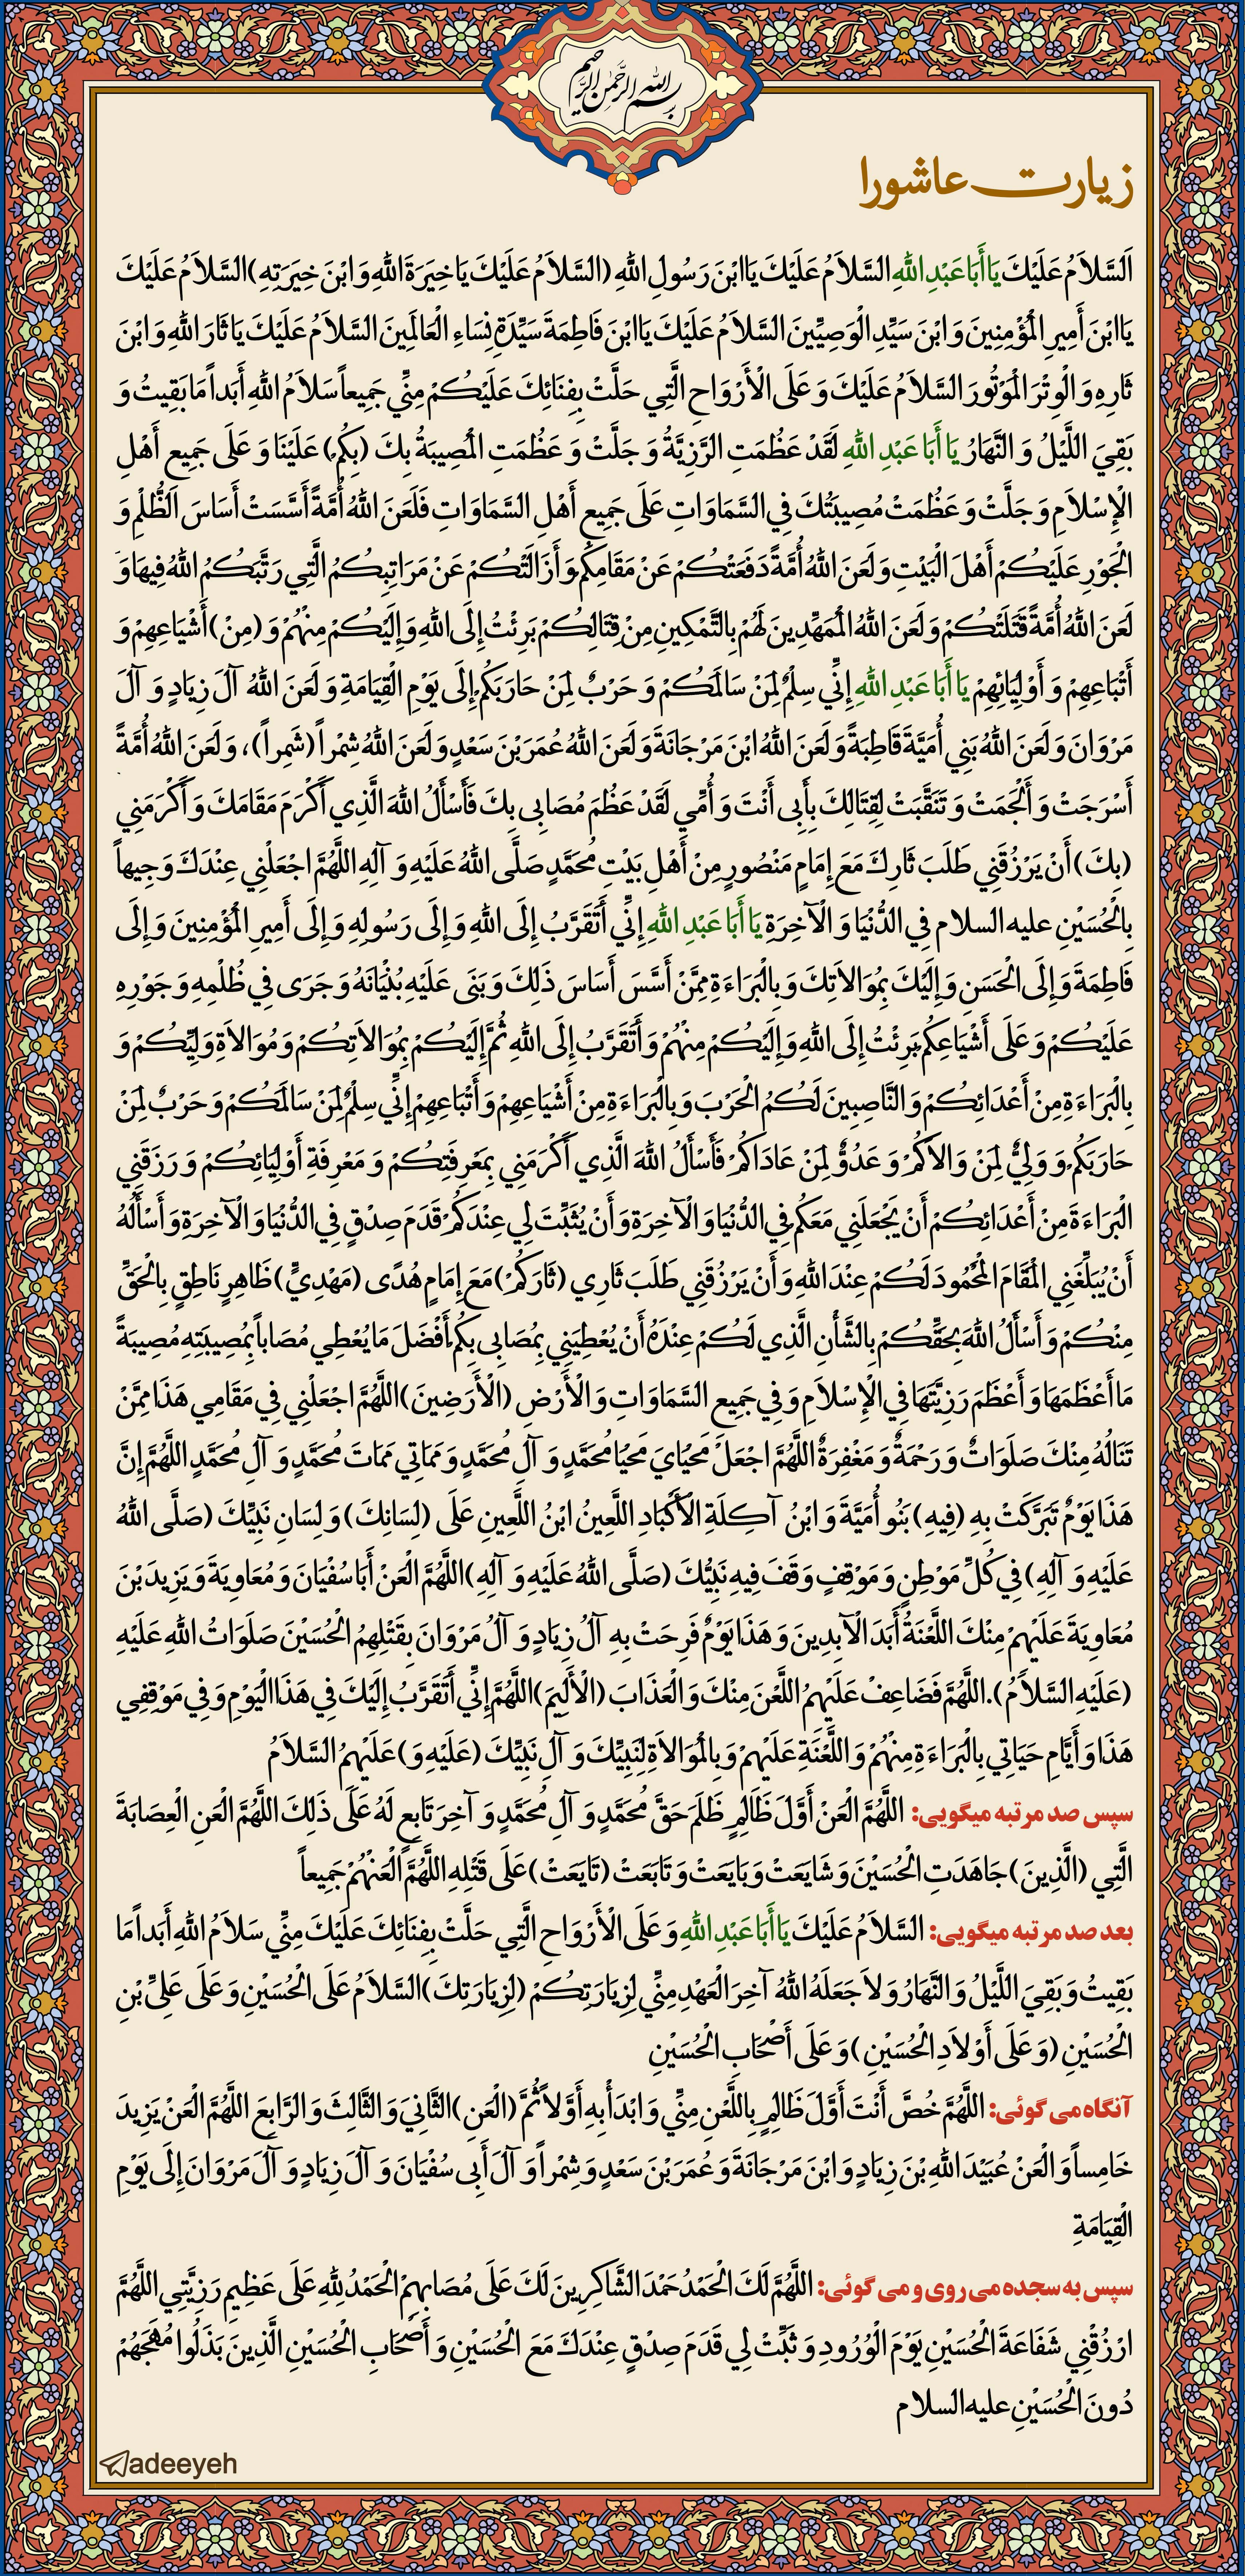 بسم الله الرحمن الرحیم
زیارت عاشورا
اَلسَّلاَمُ عَلَيْكَ يَا أَبَا عَبْدِ اللَّهِ السَّلاَمُ عَلَيْكَ يَا ابْنَ رَسُولِ اللَّهِ (السَّلاَمُ عَلَيْكَ يَا خِيَرَةَ اللَّهِ وَ ابْنَ خِيَرَتِهِ) السَّلاَمُ عَلَيْكَ
يَا ابْنَ أَمِيرِ الْمُؤْمِنِينَ وَ ابْنَ سَيِّدِ الْوَصِيِّينَ السَّلاَمُ عَلَيْكَ يَا ابْنَ فَاطِمَةَ سَيِّدَةِ نِسَاءِ الْعَالَمِينَ السَّلاَمُ عَلَيْكَ يَا ثَارَ اللَّهِ وَ ابْنَ
ثَارِهِ وَ الْوِتْرَ الْمَوْتُورَ السَّلاَمُ عَلَيْكَ وَ عَلَى الْأَرْوَاحِ الَّتِي حَلَّتْ بِفِنَائِكَ عَلَيْكُمْ مِنِّي جَمِيعاً سَلاَمُ اللَّهِ أَبَداً مَا بَقِيتُ وَ
بَقِيَ اللَّيْلُ وَ النَّهَارُ يَا أَبَا عَبْدِ اللَّهِ لَقَدْ عَظُمَتِ الرَّزِيَّةُ وَ جَلَّتْ وَ عَظُمَتِ الْمُصِيبَةُ بِكَ (بِكُمْ) عَلَيْنَا وَ عَلَى جَمِيعِ أَهْلِ
الْإِسْلاَمِ وَ جَلَّتْ وَ عَظُمَتْ مُصِيبَتُكَ فِي السَّمَاوَاتِ عَلَى جَمِيعِ أَهْلِ السَّمَاوَاتِ فَلَعَنَ اللَّهُ أُمَّةً أَسَّسَتْ أَسَاسَ الظُّلْمِ وَ
الْجَوْرِ عَلَيْكُمْ أَهْلَ الْبَيْتِ وَ لَعَنَ اللَّهُ أُمَّةً دَفَعَتْكُمْ عَنْ مَقَامِكُمْ وَ أَزَالَتْكُمْ عَنْ مَرَاتِبِكُمُ الَّتِي رَتَّبَكُمُ اللَّهُ فِيهَا وَ
لَعَنَ اللَّهُ أُمَّةً قَتَلَتْكُمْ وَ لَعَنَ اللَّهُ الْمُمَهِّدِينَ لَهُمْ بِالتَّمْكِينِ مِنْ قِتَالِكُمْ بَرِئْتُ إِلَى اللَّهِ وَ إِلَيْكُمْ مِنْهُمْ وَ (مِنْ) أَشْيَاعِهِمْ وَ
أَتْبَاعِهِمْ وَ أَوْلِيَائِهِمْ يَا أَبَا عَبْدِ اللَّهِ إِنِّي سِلْمٌ لِمَنْ سَالَمَكُمْ وَ حَرْبٌ لِمَنْ حَارَبَكُمْ إِلَى يَوْمِ الْقِيَامَةِ وَ لَعَنَ اللَّهُ آلَ زِيَادٍ وَ آلَ
مَرْوَانَ وَ لَعَنَ اللَّهُ بَنِي أُمَيَّةَ قَاطِبَةً وَ لَعَنَ اللَّهُ ابْنَ مَرْجَانَةَ وَ لَعَنَ اللَّهُ عُمَرَ بْنَ سَعْدٍ وَ لَعَنَ اللَّهُ شِمْراً (شَمِراً)، وَ لَعَنَ اللَّهُ أُمَّةً
أَسْرَجَتْ وَ أَلْجَمَتْ وَ تَنَقَّبَتْ لِقِتَالِكَ بِأَبِي أَنْتَ وَ أُمِّي لَقَدْ عَظُمَ مُصَابِي بِكَ فَأَسْأَلُ اللَّهَ الَّذِي أَكْرَمَ مَقَامَكَ وَ أَكْرَمَنِي
(بِكَ) أَنْ يَرْزُقَنِي طَلَبَ ثَارِكَ مَعَ إِمَامٍ مَنْصُورٍ مِنْ أَهْلِ بَيْتِ مُحَمَّدٍ صَلَّى اللَّهُ عَلَيْهِ وَ آلِهِ اللَّهُمَّ اجْعَلْنِي عِنْدَكَ وَجِيهاً
بِالْحُسَيْنِ علیه السلام فِي الدُّنْيَا وَ الْآخِرَةِ يَا أَبَا عَبْدِ اللَّهِ إِنِّي أَتَقَرَّبُ إِلَى اللَّهِ وَ إِلَى رَسُولِهِ وَ إِلَى أَمِيرِ الْمُؤْمِنِينَ وَ إِلَى
فَاطِمَةَ وَ إِلَى الْحَسَنِ وَ إِلَيْكَ بِمُوَالاَتِكَ وَ بِالْبَرَاءَةِ مِمَّنْ أَسَّسَ أَسَاسَ ذَلِكَ وَ بَنَى عَلَيْهِ بُنْيَانَهُ وَ جَرَى فِي ظُلْمِهِ وَ جَوْرِهِ
عَلَيْكُمْ وَ عَلَى أَشْيَاعِكُمْ بَرِئْتُ إِلَى اللَّهِ وَ إِلَيْكُمْ مِنْهُمْ وَ أَتَقَرَّبُ إِلَى اللَّهِ ثُمَّ إِلَيْكُمْ بِمُوَالاَتِكُمْ وَ مُوَالاَةِ وَلِيِّكُمْ وَ
بِالْبَرَاءَةِ مِنْ أَعْدَائِكُمْ وَ النَّاصِبِينَ لَكُمُ الْحَرْبَ وَ بِالْبَرَاءَةِ مِنْ أَشْيَاعِهِمْ وَ أَتْبَاعِهِمْ إِنِّي سِلْمٌ لِمَنْ سَالَمَكُمْ وَ حَرْبٌ لِمَنْ
حَارَبَكُمْ وَ وَلِيٌّ لِمَنْ وَالاَكُمْ وَ عَدُوٌّ لِمَنْ عَادَاكُمْ فَأَسْأَلُ اللَّهَ الَّذِي أَكْرَمَنِي بِمَعْرِفَتِكُمْ وَ مَعْرِفَةِ أَوْلِيَائِكُمْ وَ رَزَقَنِي
الْبَرَاءَةَ مِنْ أَعْدَائِكُمْ أَنْ يَجْعَلَنِي مَعَكُمْ فِي الدُّنْيَا وَ الْآخِرَةِ وَ أَنْ يُثَبِّتَ لِي عِنْدَكُمْ قَدَمَ صِدْقٍ فِي الدُّنْيَا وَ الْآخِرَةِ وَ أَسْأَلُهُ
أَنْ يُبَلِّغَنِي الْمَقَامَ الْمَحْمُودَ لَكُمْ عِنْدَ اللَّهِ وَ أَنْ يَرْزُقَنِي طَلَبَ ثَارِي (ثَارَكُمْ) مَعَ إِمَامٍ هُدًى (مَهْدِيٍّ) ظَاهِرٍ نَاطِقٍ بِالْحَقِّ
مِنْكُمْ وَ أَسْأَلُ اللَّهَ بِحَقِّكُمْ بِالشَّأْنِ الَّذِي لَكُمْ عِنْدَهُ أَنْ يُعْطِيَنِي بِمُصَابِي بِكُمْ أَفْضَلَ مَا يُعْطِي مُصَاباً بِمُصِيبَتِهِ مُصِيبَةً
مَا أَعْظَمَهَا وَ أَعْظَمَ رَزِيَّتَهَا فِي الْإِسْلاَمِ وَ فِي جَمِيعِ السَّمَاوَاتِ وَ الْأَرْضِ (الْأَرَضِينَ) اللَّهُمَّ اجْعَلْنِي فِي مَقَامِي هَذَا مِمَّنْ
تَنَالُهُ مِنْكَ صَلَوَاتٌ وَ رَحْمَةٌ وَ مَغْفِرَةٌ اللَّهُمَّ اجْعَلْ مَحْيَايَ مَحْيَا مُحَمَّدٍ وَ آلِ مُحَمَّدٍ وَ مَمَاتِي مَمَاتَ مُحَمَّدٍ وَ آلِ مُحَمَّدٍ اللَّهُمَّ إِنَّ
هَذَا يَوْمٌ تَبَرَّكَتْ بِهِ (فِيهِ) بَنُو أُمَيَّةَ وَ ابْنُ آكِلَةِ الْأَكْبَادِ اللَّعِينُ ابْنُ اللَّعِينِ عَلَى (لِسَانِكَ) وَ لِسَانِ نَبِيِّكَ (صَلَّى اللَّهُ
عَلَيْهِ وَ آلِهِ) فِي كُلِّ مَوْطِنٍ وَ مَوْقِفٍ وَقَفَ فِيهِ نَبِيُّكَ (صَلَّى اللَّهُ عَلَيْهِ وَ آلِهِ) اللَّهُمَّ الْعَنْ أَبَا سُفْيَانَ وَ مُعَاوِيَةَ وَ يَزِيدَ بْنَ
مُعَاوِيَةَ عَلَيْهِمْ مِنْكَ اللَّعْنَةُ أَبَدَ الْآبِدِينَ وَ هَذَا يَوْمٌ فَرِحَتْ بِهِ آلُ زِيَادٍ وَ آلُ مَرْوَانَ بِقَتْلِهِمُ الْحُسَيْنَ صَلَوَاتُ اللَّهِ عَلَيْهِ
(عَلَيْهِ السَّلاَمُ). اللَّهُمَّ فَضَاعِفْ عَلَيْهِمُ اللَّعْنَ مِنْكَ وَ الْعَذَابَ (الْأَلِيمَ) اللَّهُمَّ إِنِّي أَتَقَرَّبُ إِلَيْكَ فِي هَذَا الْيَوْمِ وَ فِي مَوْقِفِي
هَذَا وَ أَيَّامِ حَيَاتِي بِالْبَرَاءَةِ مِنْهُمْ وَ اللَّعْنَةِ عَلَيْهِمْ وَ بِالْمُوَالاَةِ لِنَبِيِّكَ وَ آلِ نَبِيِّكَ (عَلَيْهِ وَ) عَلَيْهِمُ السَّلاَمُ
سپس صد مرتبه میگویی: اللَّهُمَّ الْعَنْ أَوَّلَ ظَالِمٍ ظَلَمَ حَقَّ مُحَمَّدٍ وَ آلِ مُحَمَّدٍ وَ آخِرَ تَابِعٍ لَهُ عَلَى ذَلِكَ اللَّهُمَّ الْعَنِ الْعِصَابَةَ
الَّتِي (الَّذِينَ) جَاهَدَتِ الْحُسَيْنَ وَ شَايَعَتْ وَ بَايَعَتْ وَ تَابَعَتْ (تَايَعَتْ) عَلَى قَتْلِهِ اللَّهُمَّ الْعَنْهُمْ جَمِيعاً
بعد صد مرتبه میگویی: السَّلاَمُ عَلَيْكَ يَا أَبَا عَبْدِ اللَّهِ وَ عَلَى الْأَرْوَاحِ الَّتِي حَلَّتْ بِفِنَائِكَ عَلَيْكَ مِنِّي سَلاَمُ اللَّهِ أَبَداً مَا
بَقِيتُ وَ بَقِيَ اللَّيْلُ وَ النَّهَارُ وَ لاَ جَعَلَهُ اللَّهُ آخِرَ الْعَهْدِ مِنِّي لِزِيَارَتِكُمْ (لِزِيَارَتِكَ) السَّلاَمُ عَلَى الْحُسَيْنِ وَ عَلَى عَلِيِّ بْنِ
الْحُسَيْنِ (وَ عَلَى أَوْلاَدِ الْحُسَيْنِ) وَ عَلَى أَصْحَابِ الْحُسَيْنِ
آنگاه می گوئی: اللَّهُمَّ خُصَّ أَنْتَ أَوَّلَ ظَالِمٍ بِاللَّعْنِ مِنِّي وَ ابْدَأْ بِهِ أَوَّلاً ثُمَّ (الْعَنِ) الثَّانِيَ وَ الثَّالِثَ وَ الرَّابِعَ اللَّهُمَّ الْعَنْ يَزِيدَ
خَامِساً وَ الْعَنْ عُبَيْدَ اللَّهِ بْنَ زِيَادٍ وَ ابْنَ مَرْجَانَةَ وَ عُمَرَ بْنَ سَعْدٍ وَ شِمْراً وَ آلَ أَبِي سُفْيَانَ وَ آلَ زِيَادٍ وَ آلَ مَرْوَانَ إِلَى يَوْمِ
الْقِيَامَةِ
سپس به سجده می روی و می گوئی: اللَّهُمَّ لَكَ الْحَمْدُ حَمْدَ الشَّاكِرِينَ لَكَ عَلَى مُصَابِهِمْ الْحَمْدُ لِلَّهِ عَلَى عَظِيمِ رَزِيَّتِي اللَّهُمَّ
ارْزُقْنِي شَفَاعَةَ الْحُسَيْنِ يَوْمَ الْوُرُودِ وَ ثَبِّتْ لِي قَدَمَ صِدْقٍ عِنْدَكَ مَعَ الْحُسَيْنِ وَ أَصْحَابِ الْحُسَيْنِ الَّذِينَ بَذَلُوا مُهَجَهُمْ
دُونَ الْحُسَيْنِ علیه السلام
adeeyeh